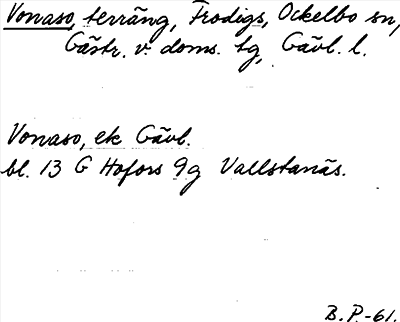 Vonaso, terräng, Frodigs, Ockelbo sn,
Gästr. v. doms. tg, Gävl. l.
Vonaso, ek Gävl.
bl. 13 G Hofors 9g Vallstanäs.
B.P.-61.